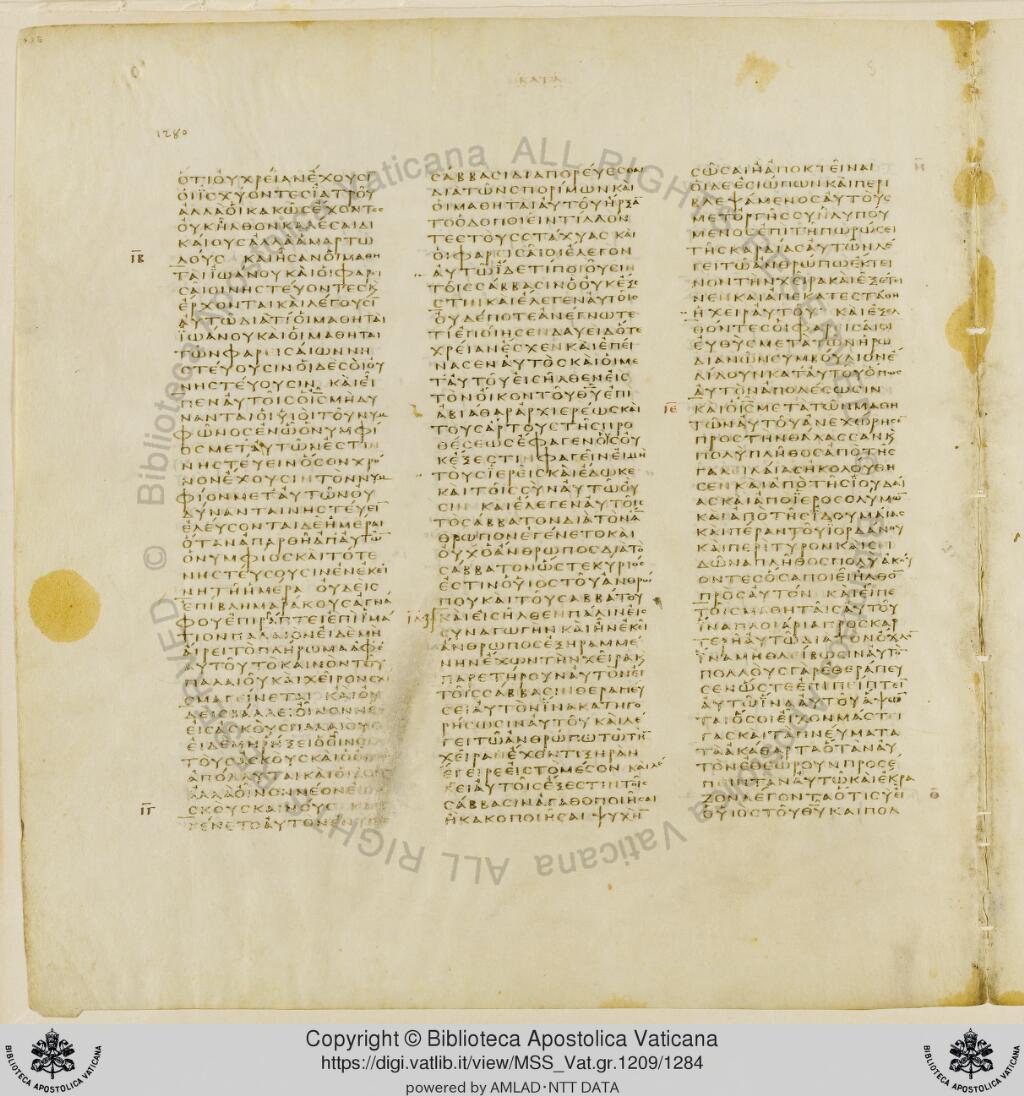 ΚΑΤΑ
1280
ΟΤΙΟΥΧΡΕΙΑΝΕΧΟΥΣΙ
ΟΙΙΣΧΥΟΝΤΕΣΙΑΤΡΟΥ
ΑΛΛΑΟΙΚΑΚΩΣΕΧΟΝΤΕΣ
ΟΥΚΗΛΘΟΝΚΑΛΕΣΑΙΔΙ
ΚΑΙΟΥΣΑΛΛΑΑΜΑΡΤΩ
ΙΒ ΛΟΥΣ ΚΑΙΗΣΑΝΟΙΜΑΘΗ
ΤΑΙΙΩΑΝΟΥΚΑΙΟΙΦΑΡΙ
ΣΑΙΟΙΝΗΣΤΕΥΟΝΤΕΣΚ
ΕΡΧΟΝΤΑΙΚΑΙΛΕΓΟΥΣΙ
ΑΥΤΩΔΙΑΤΙΟΙΜΑΘΗΤΑΙ
ΙΩΑΝΟΥΚΑΙΟΙΜΑΘΗΤΑΙ
ΤΩΝΦΑΡΙΣΑΙΩΝΝΗ
ΣΤΕΥΟΥΣΙΝΟΙΔΕΣΟΙΟΥ
ΝΗΣΤΕΥΟΥΣΙΝ ΚΑΙΕΙ
ΠΕΝΑΥΤΟΙΣΟΙΣΜΗΔΥ
ΝΑΝΤΑΙΟΙΥΙΟΙΤΟΥΝΥΜ
ΦΩΝΟΣΕΝΩΟΝΥΜΦΙ
ΟΣΜΕΤΑΥΤΩΝΕΣΤΙΝ
ΝΗΣΤΕΥΕΙΝΟΣΟΝΧΡΟ
ΝΟΝΕΧΟΥΣΙΝΤΟΝΝΥΜ
ΦΙΟΝΜΕΤΑΥΤΩΝΟΥ
ΔΥΝΑΝΤΑΙΝΗΣΤΕΥΕΙ
ΕΛΕΥΣΟΝΤΑΙΔΕΗΜΕΡΑΙ
ΟΤΑΝΑΠΑΡΘΗΑΠΑΥΤΩ
ΟΝΥΜΦΙΟΣΚΑΙΤΟΤΕ
ΝΗΣΤΕΥΣΟΥΣΙΝΕΝΕΚΕΙ
ΝΗΤΗΗΜΕΡΑ ΟΥΔΕΙΣ
ΕΠΙΒΛΗΜΑΡΑΚΟΥΣΑΓΝΑ
ΦΟΥΕΠΙΡΑΠΤΕΙΕΠΙΙΜΑ
ΤΙΟΝΠΑΛΑΙΟΝΕΙΔΕΜΗ
ΑΙΡΕΙΤΟΠΛΗΡΩΜΑΑΦΕ
ΑΥΤΟΥΤΟΚΑΙΝΟΝΤΟΥ
ΠΑΛΑΙΟΥΚΑΙΧΕΙΡΟΝΣΧΙ
ΣΜΑΓΕΙΝΕΤΑΙ ΚΑΙΟΥ
ΔΕΙΣΒΑΛΛΕΙΟΙΝΟΝΝΕΟ
ΕΙΣΑΣΚΟΥΣΠΑΛΑΙΟΥΣ
ΕΙΔΕΜΗΡΗΞΕΙΟΟΙΝΟΣ
ΤΟΥΣΑΣΚΟΥΣΚΑΙΟΟΙΝΟΣ
ΑΠΟΛΛΥΤΑΙΚΑΙΟΙΑΣΚΟΙ
ΑΛΛΑΟΙΝΟΝΝΕΟΝΕΙΣΑ
ΙΓ ΣΚΟΥΣΚΑΙΝΟΥΣ ΚΑΙΕ
ΓΕΝΕΤΟΑΥΤΟΝΕΝΤΟΙΣ
ΣΑΒΒΑΣΙΔΙΑΠΟΡΕΥΕΣΘΑΙ
ΔΙΑΤΩΝΣΠΟΡΙΜΩΝΚΑΙ
ΟΙΜΑΘΗΤΑΙΑΥΤΟΥΗΡΞΑ
ΤΟΟΔΟΠΟΙΕΙΝΤΙΛΛΟΝ
ΤΕΣΤΟΥΣΣΤΑΧΥΑΣ ΚΑΙ
ΟΙΦΑΡΙΣΑΙΟΙΕΛΕΓΟΝ
ΑΥΤΩΙΔΕΤΙΠΟΙΟΥΣΙΝ
ΤΟΙΣΣΑΒΒΑΣΙΝΟΟΥΚΕΞΕ
ΣΤΙΝΚΑΙΕΛΕΓΕΝΑΥΤΟΙΣ
ΟΥΔΕΠΟΤΕΑΝΕΓΝΩΤΕ
ΤΙΕΠΟΙΗΣΕΝΔΑΥΕΙΔΟΤΕ
ΧΡΕΙΑΝΕΣΧΕΝΚΑΙΕΠΕΙ
ΝΑΣΕΝΑΥΤΟΣΚΑΙΟΙΜΕ
ΤΑΥΤΟΥΕΙΣΗΛΘΕΝΕΙΣ
ΤΟΝΟΙΚΟΝΤΟΥΘΥΕΠΙ
ΑΒΙΑΘΑΡΑΡΧΙΕΡΕΩΣΚΑΙ
ΤΟΥΣΑΡΤΟΥΣΤΗΣΠΡΟ
ΘΕΣΕΩΣΕΦΑΓΕΝΟΥΣΟΥ
ΚΕΞΕΣΤΙΝΦΑΓΕΙΝΕΙΜΗ
ΤΟΥΣΙΕΡΕΙΣΚΑΙΕΔΩΚΕ
ΚΑΙΤΟΙΣΣΥΝΑΥΤΩΟΥ
ΣΙΝ ΚΑΙΕΛΕΓΕΝΑΥΤΟΙΣ
ΤΟΣΑΒΒΑΤΟΝΔΙΑΤΟΝΑ
ΘΡΩΠΟΝΕΓΕΝΕΤΟΚΑΙ
ΟΥΧΟΑΝΘΡΩΠΟΣΔΙΑΤΟ
ΣΑΒΒΑΤΟΝΩΣΤΕΚΥΡΙΟΣ
ΕΣΤΙΝΟΥΙΟΣΤΟΥΑΝΘΡΩ
ΠΟΥΚΑΙΤΟΥΣΑΒΒΑΤΟΥ
ΙΔ ΚΑΙΕΙΣΗΛΘΕΝΠΑΛΙΝΕΙΣ
ΣΥΝΑΓΩΓΗΝΚΑΙΗΝΕΚΕΙ
ΑΝΘΡΩΠΟΣΕΞΗΡΑΜΜΕ
ΝΗΝΕΧΩΝΤΗΝΧΕΙΡΑΚ
ΠΑΡΕΤΗΡΟΥΝΑΥΤΟΝΕΙ
ΤΟΙΣΣΑΒΒΑΣΙΝΘΕΡΑΠΕΥ
ΣΕΙΑΥΤΟΝΙΝΑΚΑΤΗΓΟ
ΡΗΣΩΣΙΝΑΥΤΟΥΚΑΙΛΕ
ΓΕΙΤΩΑΝΘΡΩΠΩΤΩΤΗ
ΧΕΙΡΑΕΧΟΝΤΙΞΗΡΑΝ
ΕΓΕΙΡΕΕΙΣΤΟΜΕΣΟΝ ΚΑΙΛΕ
ΓΕΙΑΥΤΟΙΣΕΞΕΣΤΙΝΤΟΙΣ
ΣΑΒΒΑΣΙΝΑΓΑΘΟΠΟΙΗΣΑΙ
ΗΚΑΚΟΠΟΙΗΣΑΙ ΨΥΧΗ
ΣΩΣΑΙΗΑΠΟΚΤΕΙΝΑΙ
ΟΙΔΕΕΣΙΩΠΩΝΚΑΙΠΕΡΙ
ΒΛΕΨΑΜΕΝΟΣΑΥΤΟΥΣ
ΜΕΤΟΡΓΗΣΣΥΝΛΥΠΟΥ
ΜΕΝΟΣΕΠΙΤΗΠΩΡΩΣΕΙ
ΤΗΣΚΑΡΔΙΑΣΑΥΤΩΝΛΕ
ΓΕΙΤΩΑΝΘΡΩΠΩΕΚΤΕΙ
ΝΟΝΤΗΝΧΕΙΡΑΚΑΙΕΞΕΤΕΙ
ΝΕΝΚΑΙΑΠΕΚΑΤΕΣΤΑΘΗ
Η ΗΧΕΙΡΑΥΤΟΥ ΚΑΙΕΞΕΛ
ΘΟΝΤΕΣΟΙΦΑΡΙΣΑΙΟΙ
ΕΥΘΥΣΜΕΤΑΤΩΝΗΡΩ
ΔΙΑΝΩΝΣΥΜΒΟΥΛΙΟΝΕ
ΔΙΔΟΥΝΚΑΤΑΥΤΟΥΟΠΩΣ
ΑΥΤΟΝΑΠΟΛΕΣΩΣΙΝ
ΙΕ ΚΑΙΟΙΣΜΕΤΑΤΩΝΜΑΘΗ
ΤΩΝΑΥΤΟΥΑΝΕΧΩΡΗΣΕ
ΠΡΟΣΤΗΝΘΑΛΑΣΣΑΝΚ
ΠΟΛΥΠΛΗΘΟΣΑΠΟΤΗΣ
ΓΑΛΙΛΑΙΑΣΗΚΟΛΟΥΘΗ
ΣΕΝΚΑΙΑΠΟΤΗΣΙΟΥΔΑΙ
ΑΣΚΑΙΑΠΟΙΕΡΟΣΟΛΥΜΩ
ΚΑΙΑΠΟΤΗΣΙΔΟΥΜΑΙΑΣ
ΚΑΙΠΕΡΑΝΤΟΥΙΟΡΔΑΝΟΥ
ΚΑΙΠΕΡΙΤΥΡΟΝΚΑΙΣΕΙ
ΔΩΝΑΠΛΗΘΟΣΠΟΛΥΑΚΟΥ
ΟΝΤΕΣΟΣΑΠΟΙΕΙΗΛΘΟ
ΠΡΟΣΑΥΤΟΝ ΚΑΙΕΙΠΕ
ΤΟΙΣΜΑΘΗΤΑΙΣΑΥΤΟΥ
ΙΝΑΠΛΟΙΑΡΙΑΠΡΟΣΚΑΡ
ΤΕΡΗΑΥΤΩΔΙΑΤΟΝΟΧΛΟ
ΙΝΑΜΗΘΛΕΙΒΩΣΙΝΑΥΤΟ
ΠΟΛΛΟΥΣΓΑΡΕΘΕΡΑΠΕΥ
ΣΕΝΩΣΤΕΕΠΙΠΕΙΠΤΕΙ
ΑΥΤΩΙΝΑΑΥΤΟΥΑΨΩ
ΤΑΙΟΣΟΙΕΙΧΟΝΜΑΣΤΙ
ΓΑΣΚΑΙΤΑΠΝΕΥΜΑΤΑ
ΤΑΑΚΑΘΑΡΤΑΟΤΑΝΑΥ
ΤΟΝΕΘΕΩΡΟΥΝΠΡΟΣΕ
ΠΕΙΠΤΑΝΑΥΤΩΚΑΙΕΚΡΑ
ΖΟΝΛΕΓΟΝΤΑΟΤΙΣΥΕΙ
Θ ΟΥΙΟΣΤΟΥΘΥΚΑΙΠΟΛ
Copyright © Biblioteca Apostolica Vaticana
https://digi.vatlib.it/view/MSS_Vat.gr.1209/1284
powered by AMLAD·NTT DATA
BIBLIOTECA APOSTOLICA VATICANA
BIBLIOTECA APOSTOLICA VATICANA